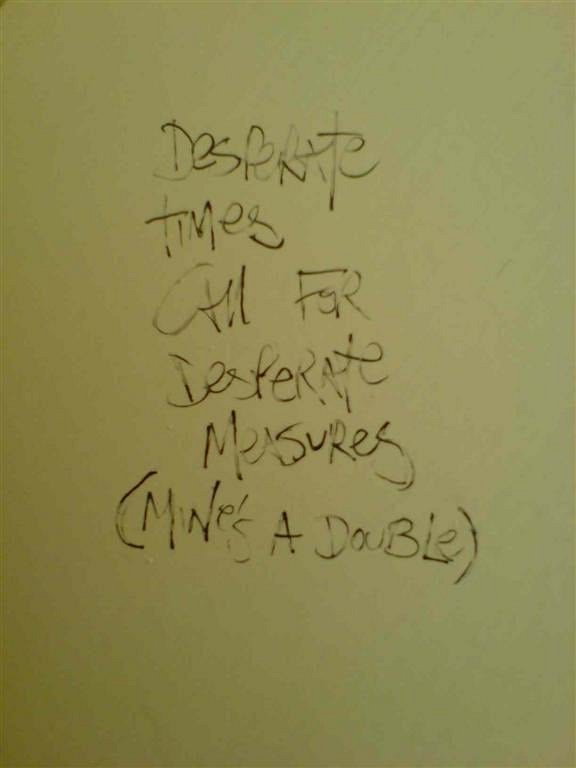 DesPeRATe
TiMes
CAll FoR
DesPeRATe
MeASURes
(MiNe's A DouBLe)